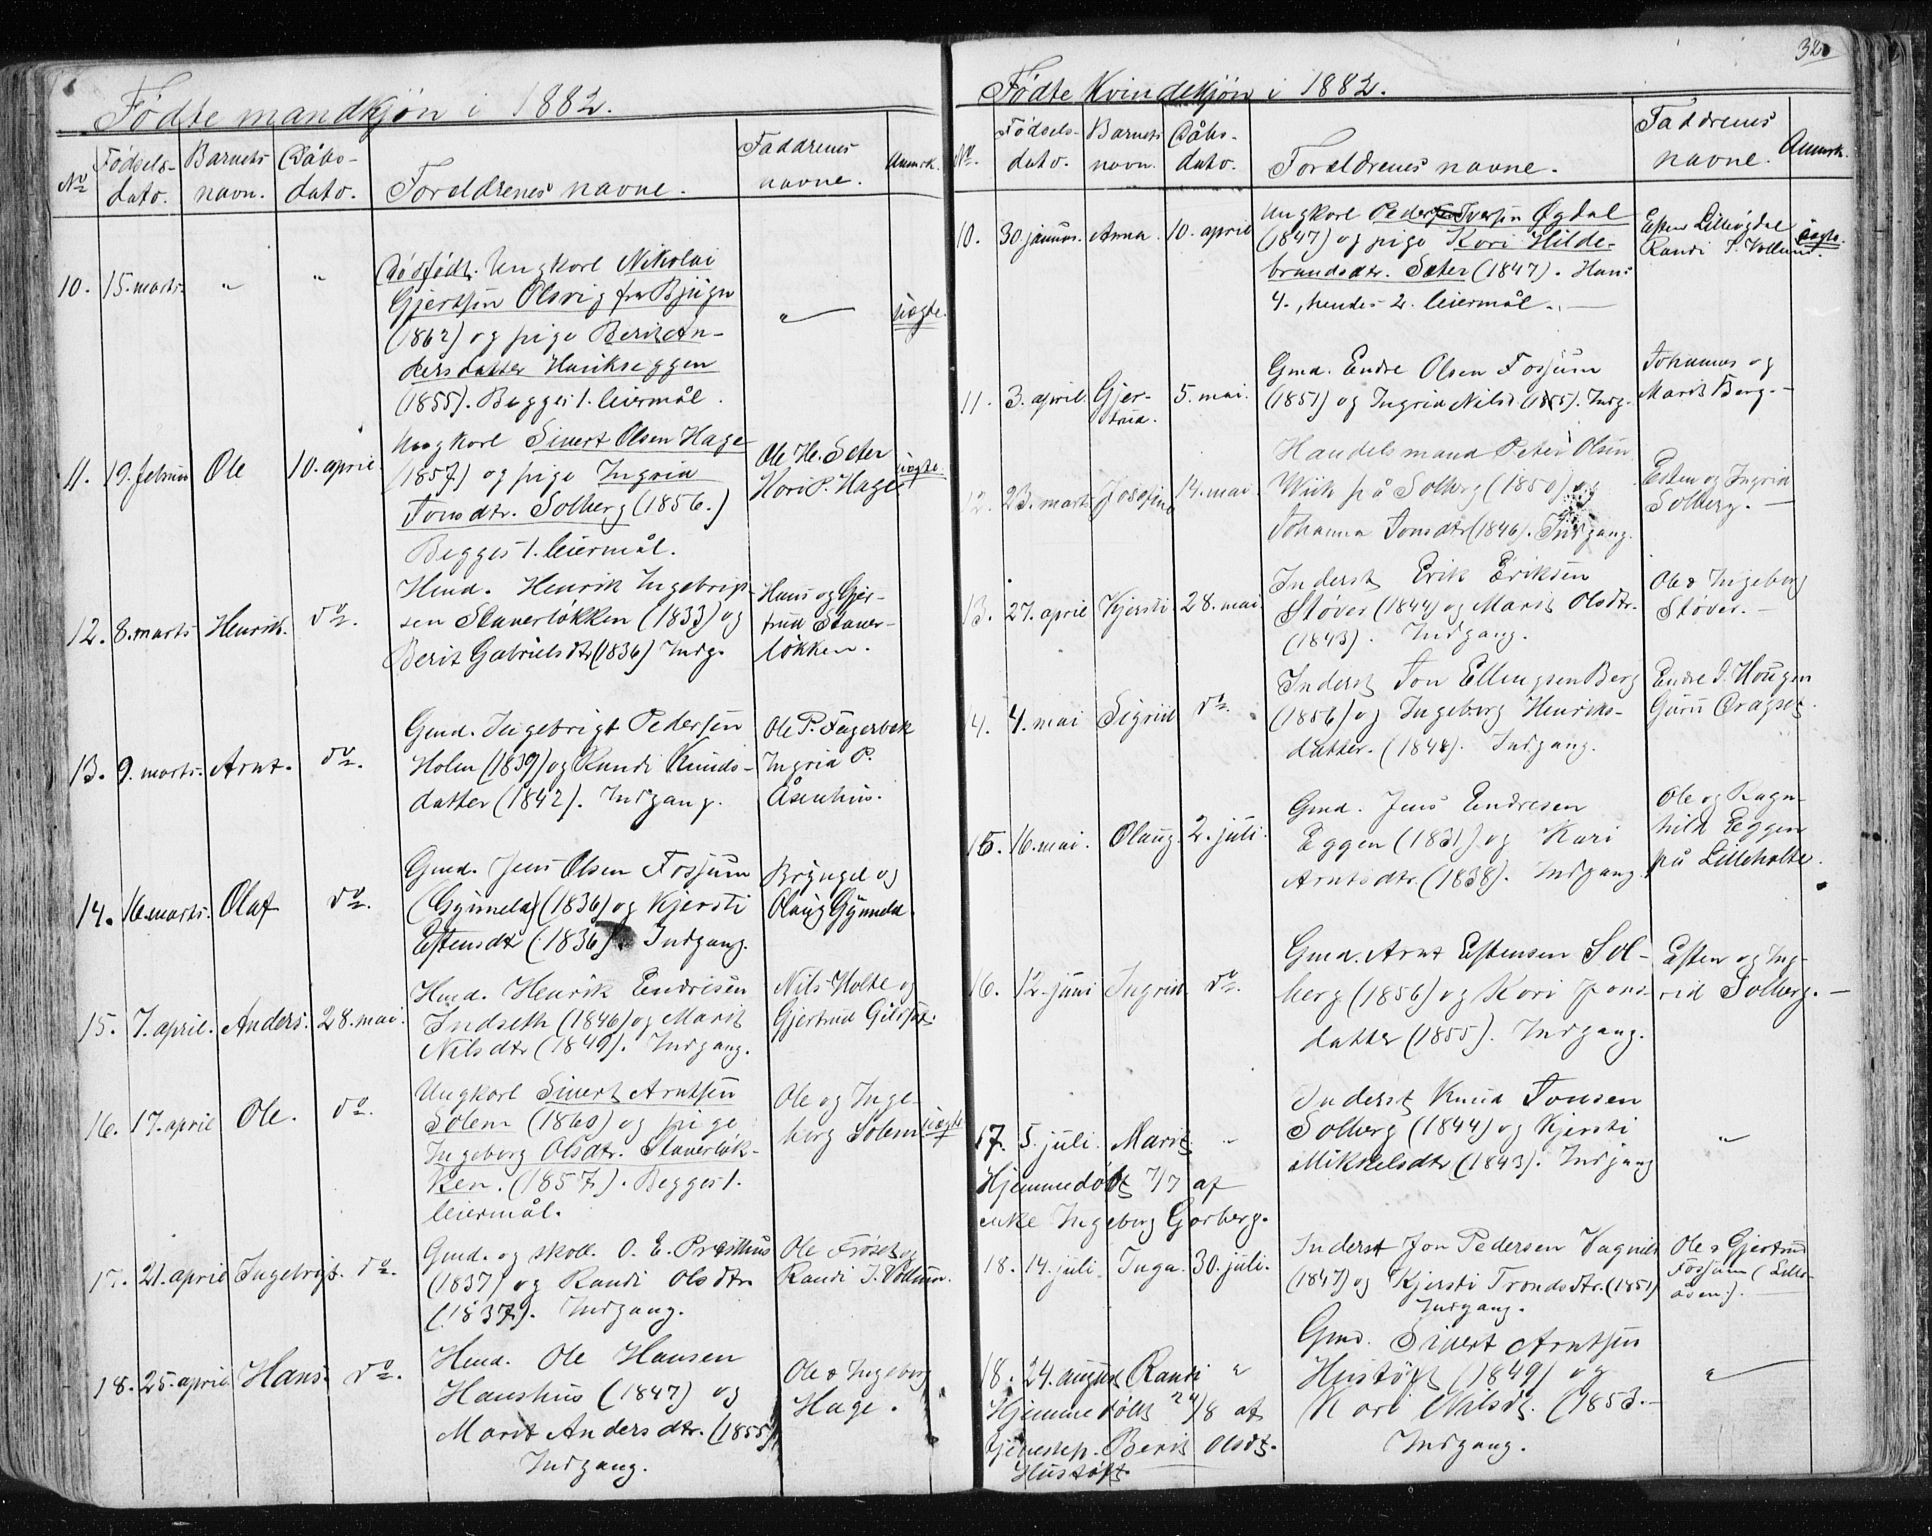 Fødte mandkjøn i 1882.
No Fødsels- dato. Barnets navn. Dåbs- dato. Forældrenes navne. Faddrenes navne. Anmrk.
10. 15. marts. " " Dødfødt. Ungkarl Nikolai
Gjertsen Olsvig fra Bjugn
(1862) og pige Berit An-
dersdatter Henrikseggen
(1855). Begges 1. leiermål.
" uægte.
11. 19. februar Ole 10. april. Ungkarl Sivert Olsen Hage
(1857) og pige Ingrid
Jonsdtr. Solberg (1856.)
Begges 1. leiermål.
Ole H. Seter
Kari P. Hage
uægte.
12. 8. marts Henrik. do. Hmd. Henrik Ingebrigt-
sen Staverløkken (1833) og
Berit Gabrielsdtr (1836) Indg.
Hans og Gjer-
trud Staver-
løkken.
13. 9. marts. Arnt. do. Gmd. Ingebrigt Pedersen
Holen (1839) og Randi Knuds-
datter (1842). Indgang.
Ole P. Fagerbek
Ingrid P.
Åsenhus.
14. 16. marts. Olaf do. Gmd. Jens Olsen Fosjum
(Gynneld) (1836) og Kjersti
Estensdtr (1836). Indgang.
Bryngel og
Olaug Gynneld.
15. 7. april. Anders. 28. mai. Hmd. Henrik Endresen
Indseth (1846) og Marit
Nilsdtr (1849). Indgang.
Nils Holte og
Gjertrud
16. 17. april Ole. do. Ungkarl Sivert Arntsen
Solem (1860) og pige
Ingeborg Olsdtr. Staverløk-
ken. (1857). Begges 1.
leiermål.
Ole og Inge-
berg Solem
uægte
17. 21. april Ingebrigt. do. Gmd. og skoll. O. E. Præsthus
(1837) og Randi Olsdtr.
(1837). Indgang.
Ole Frøset og
Randi J. Vollum.
18. 25. april Hans. do. Hmd. Ole Hansen
Hanshus (1847) og
Marit Andersdtr. (1855)
Indgang.
Ole & Ingeborg
Hage.
32
Fødte Kvindekjøn i 1882.
No. Fødsels- dato. Barnets navn. Dåbs- dato. Forældrenes navne. Faddrenes navne. Anmrk.
10. 30. januar. Anna. 10. april Ungkarl Peder Iversen Øgdal
(1847) og pige Kari Hilde-
brandsdtr. Seter (1847). Hans
4., hendes 2. leiermål.
Esten Lilleøgdal
Randi J. Vollum.
uægte.
11. 3. april. Gjer-
trud.
5. mai. Gmd. Endre Olsen Fosjum
(1851) og Ingrid Nilsd. (1855). Indg.
Johannes og
Marit Berg.
12. 23. marts Josefine 14. mai Handelsmand Peter Olsen
Wiik på Solberg (1850) og
Johanna Jonsdtr (1846). Indgang.
Esten og Ingrid
Solberg.
13. 27. april Kjersti 28. mai. Inderst Erik Eriksen
Støver (1844) og Marit Olsdtr.
(1843). Indgang.
Ole & Ingeborg
Støver.
4. 4. mai Sigrid do. Inderst Jon Ellingsen Berg
(1856) og Ingeborg Henriks-
datter. (1848). Indgang.
Endre J. Hougen
Guru Dragset.
15. 16. mai. Olaug. 2. juli. Gmd. Jens Endresen
Eggen (1831) og Kari
Arntsdtr. (1838). Indgang.
Ole og Ragn-
hild Eggen
på Lilleholte.
16. 12. juni Ingrid do. Gmd. Arnt Estensen Sol-
berg (1856) og Kari Jons-
datter (1855). Indgang.
Esten og Ing-
rid Solberg.
17. 5. juli. Marit. " Inderst Knud Jonsen
Solberg (1844) og Kjersti
Mikkelsdtr (1843). Indgang
"
Hjemmedøbt 7/7 af
enke Ingeborg Gorberg.
18. 14. juli. Inga. 30. juli. Inderst Jon Pedersen Vagnild
(1847) og Kjersti Trondsdtr. (1851)
Indgang.
Ole & Gjertrud
Fosjum (Lille-
åsen).
18. 24. august Randi " Gmd. Sivert Arntsen
Hustøft (1849) og
Kari Nilsdt. (1853.
Indgang.
"
Hjemmedøbt 24/8 af
tjenestep. Berit Olsdt.
Hustøft.